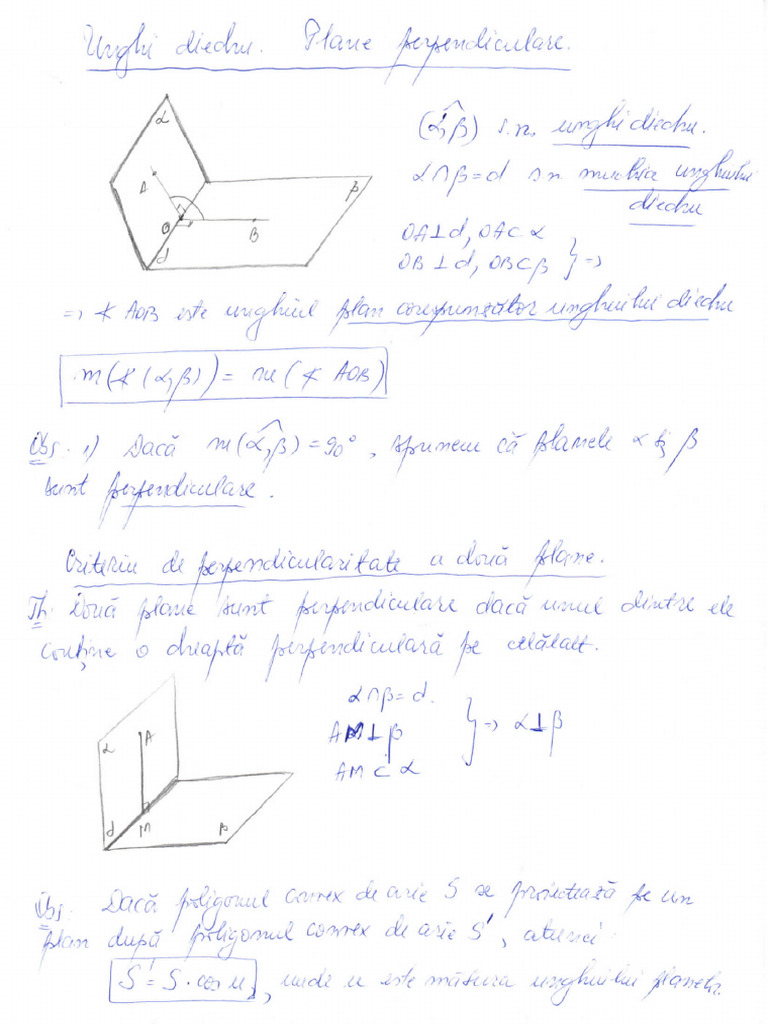 Unghi diedru. Plane perpendiculare.
α
A
O
B
β
d
(α,β) s.n. unghi diedru.
α∩β=d sn muchia unghiului
diedru
OA⊥d, OA⊂α
OB⊥d, OB⊂β } =>
=> ∢AOB este unghiul plan corespunzător unghiului diedru
m(∢(α,β)) = m(∢AOB)
Obs. 1) Dacă m(α,β)=90°, spunem că planele α și β
sunt perpendiculare.
Criteriu de perpendicularitate a două plane.
Th. Două plane sunt perpendiculare dacă unul dintre ele
conține o dreaptă perpendiculară pe celălalt.
α
A
d
M
β
α∩β=d.
AM⊥β } => α⊥β
AM⊂α
Obs. Dacă poligonul convex de arie S se proiectează pe un
plan după poligonul convex de arie S', atunci
S'=S·cos u, unde u este măsura unghiului planelor.